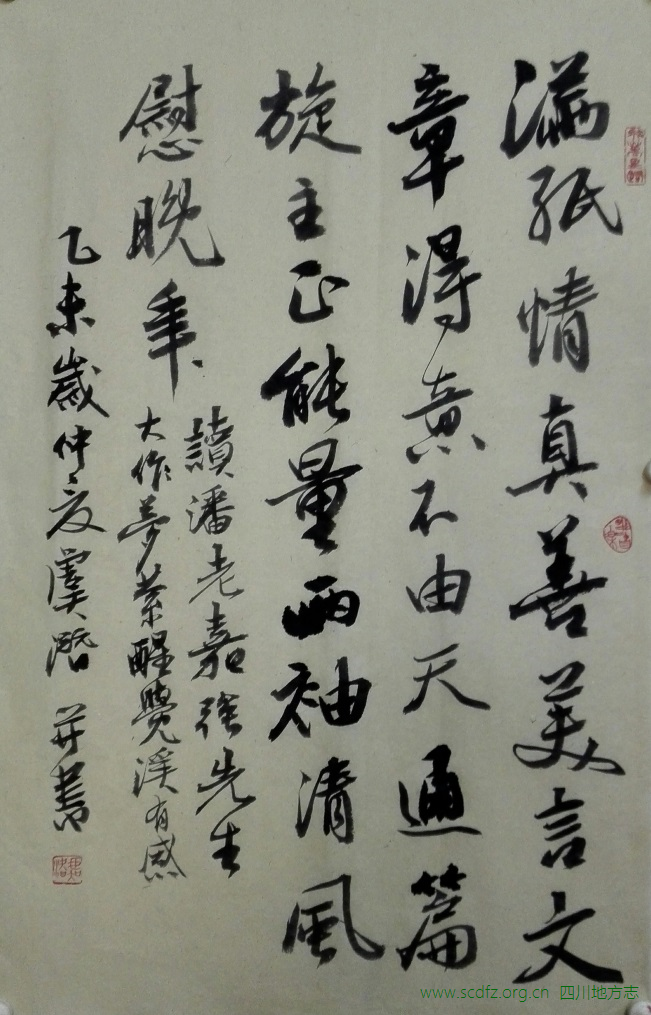 滿紙情真善美言文
章得意不由天通篇
旋主正能量兩袖清風
慰晚年
讀潘老嘉强先生
大作夢縈醒覺溪有感
乙未歲仲夏虞階并書
www.scdfz.org.cn 四川地方志